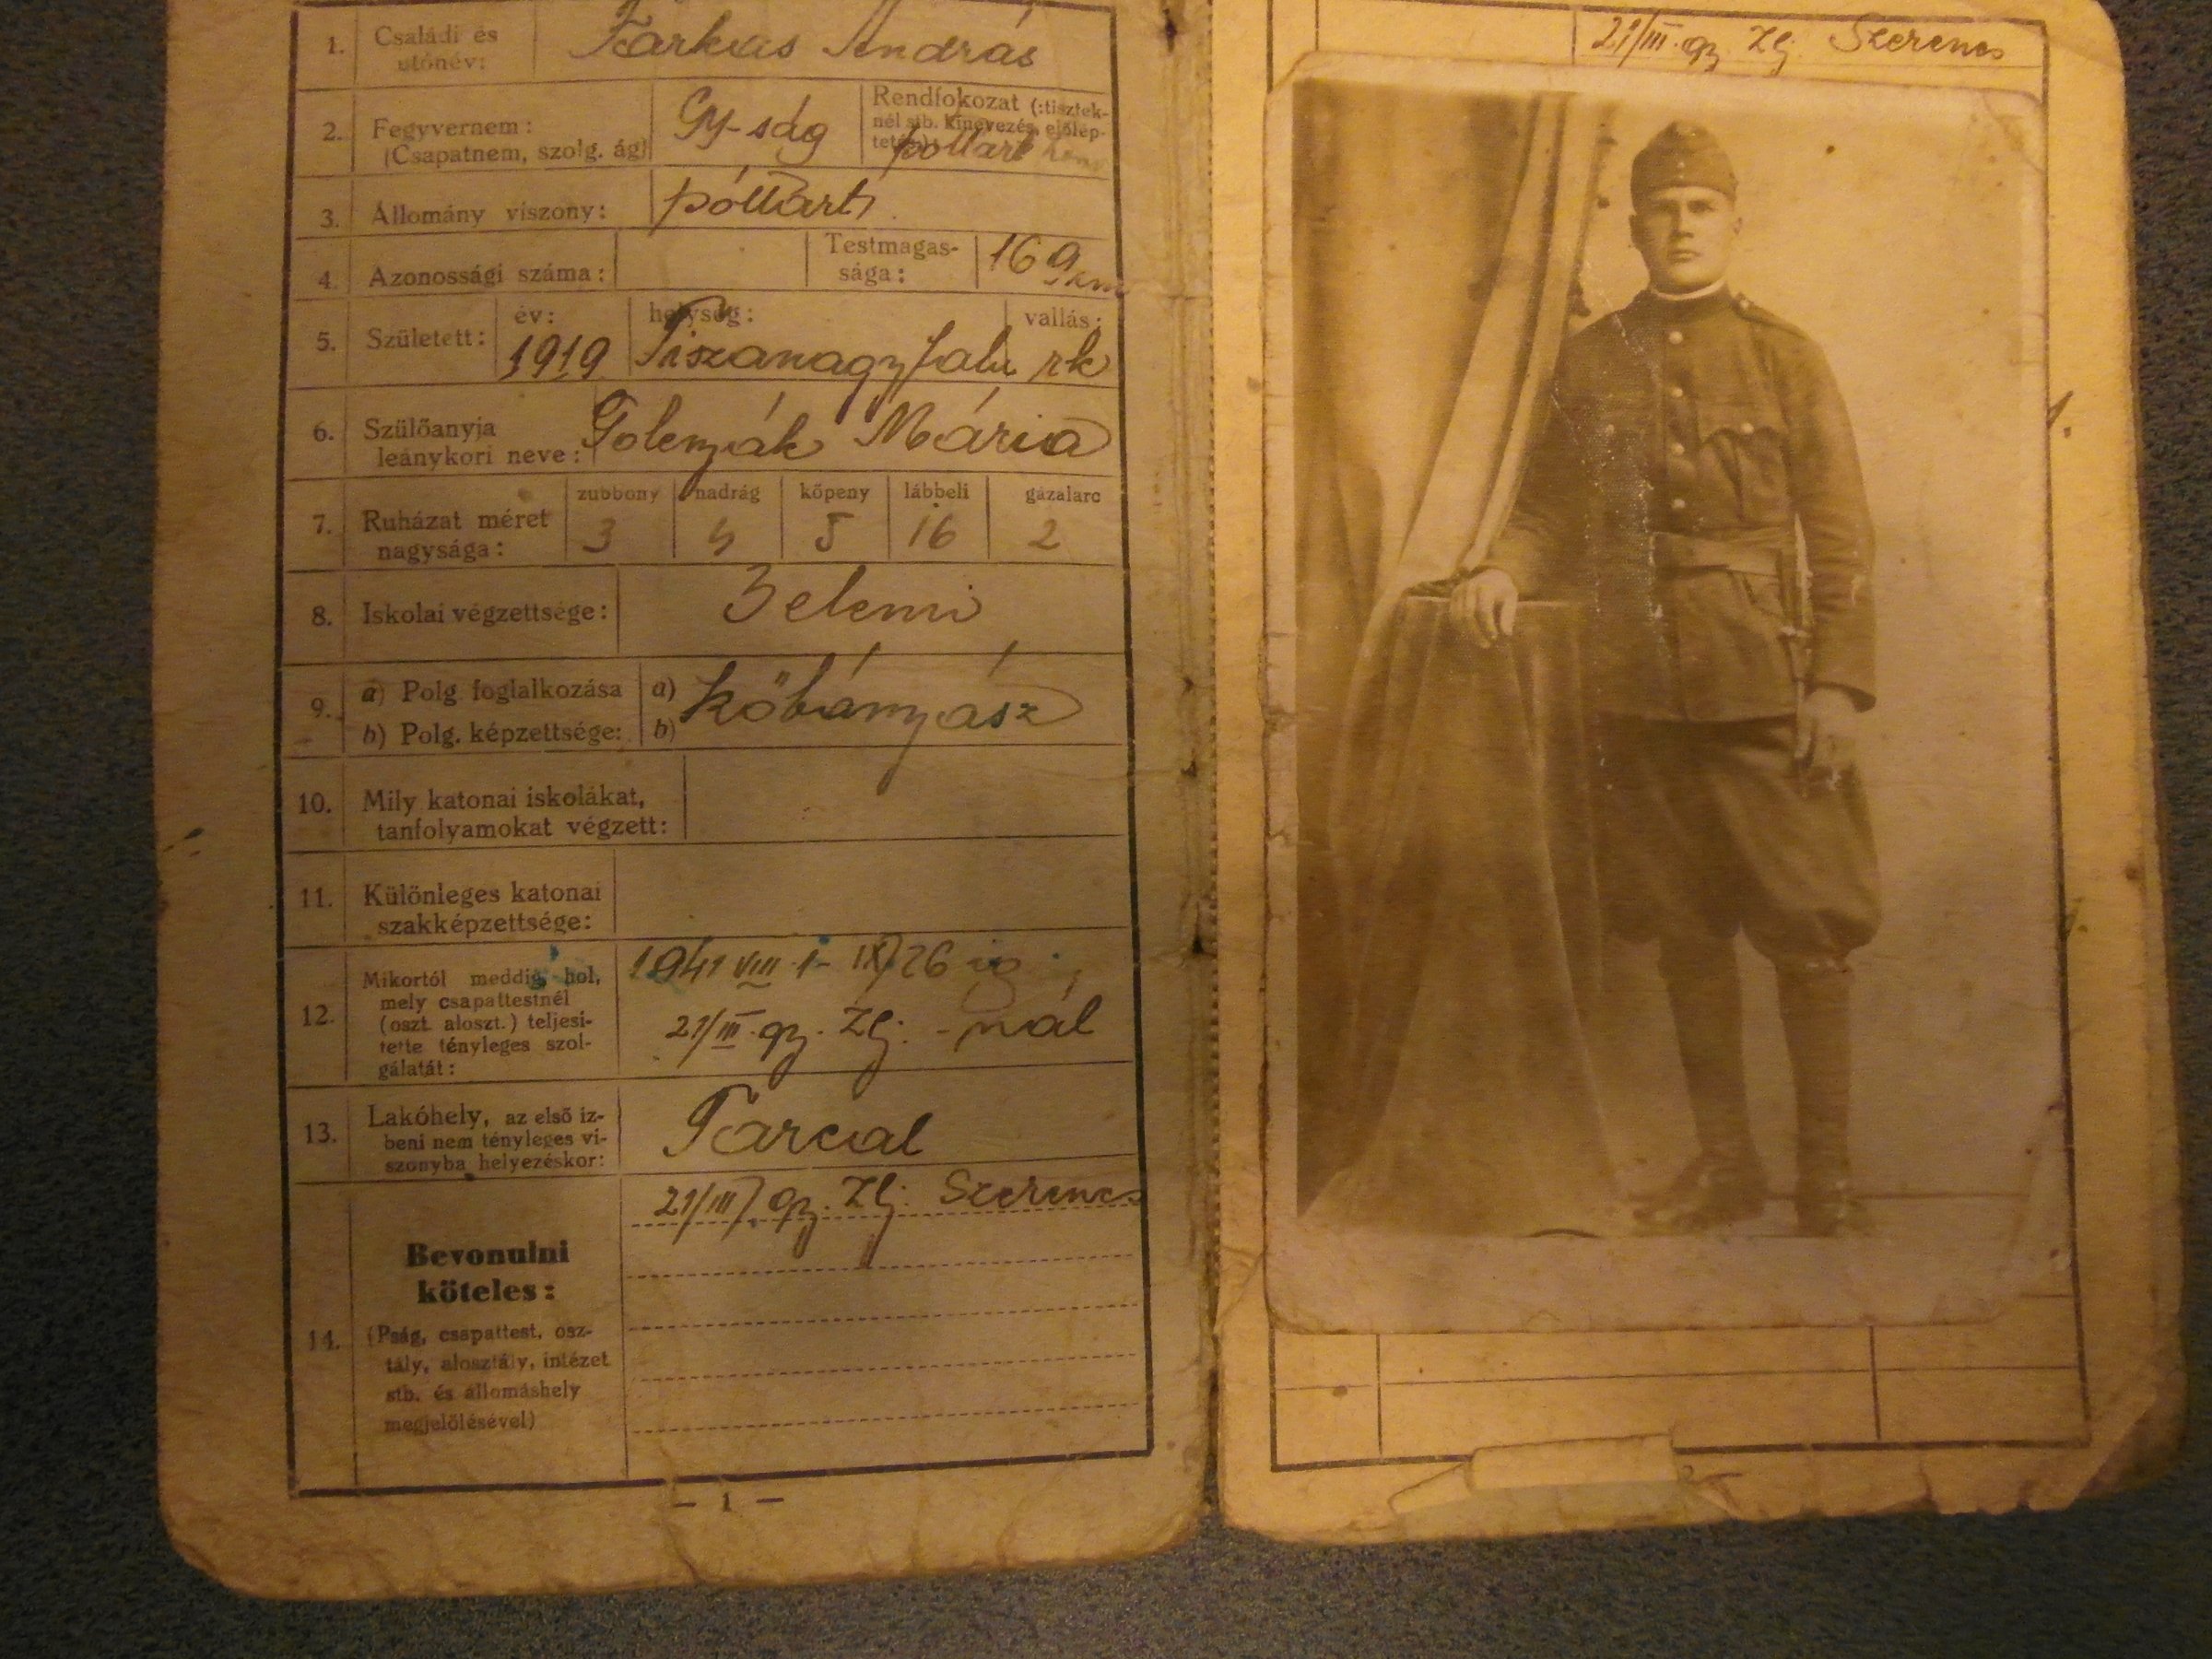 1. Családi és utónév: Farkas András
2. Fegyvernem: (Csapatnem, szolg. ág) Gy-ság Rendfokozat (:tisztek-
nél stb. kinevezés, előlép-
tetés): póttart honv
3. Állomány viszony: póttart
4. Azonossági száma: Testmagas-
sága: 169 cm
5. Született: év: 1919 helység: Tiszanagyfalu vallás: rk
6. Szülőanyja
leánykori neve: Mária
7. Ruházat méret
nagysága: zubbony nadrág köpeny lábbeli gázalarc
3 4 5 16 2
8. Iskolai végzettsége: 3 elemi
9. a) Polg. foglalkozása a) kőbányász
b) Polg. képzettsége: b)
10. Mily katonai iskolákat,
tanfolyamokat végzett:
11. Különleges katonai
szakképzettsége:
12. Mikortól meddig, hol,
mely csapattestnél
(oszt. aloszt.) teljesi-
tette tényleges szol-
gálatát:
1941 VIII. 1- IX 26 ig
21/III. gy. zlj. -nál
13. Lakóhely, az első íz-
beni nem tényleges vi-
szonyba helyezéskor: Tarcal
14. Bevonulni
köteles:
(Pság, csapattest, osz-
tály, alosztály, intézet
stb. és állomáshely
megjelölésével)
21/III. gy. zlj. Szerencs
— 1 —
21/III. gy. zlj. Szerencs